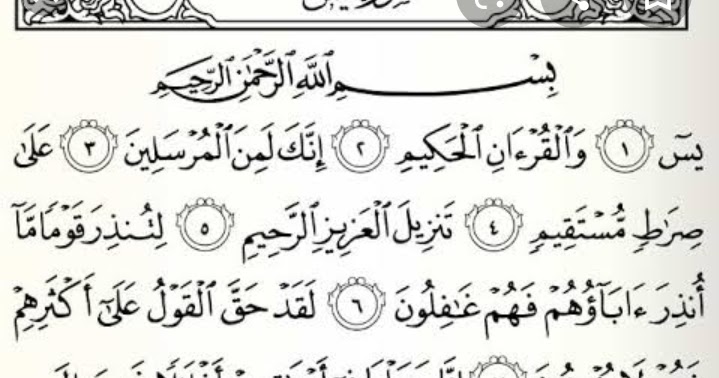 بِسْمِ ٱللَّهِ ٱلرَّحْمَٰنِ ٱلرَّحِيمِ
يسٓ ١ وَٱلْقُرْءَانِ ٱلْحَكِيمِ ٢ إِنَّكَ لَمِنَ ٱلْمُرْسَلِينَ ٣ عَلَىٰ
صِرَٰطٍ مُّسْتَقِيمٍ ٤ تَنزِيلَ ٱلْعَزِيزِ ٱلرَّحِيمِ ٥ لِتُنذِرَ قَوْمًا مَّآ
أُنذِرَ ءَابَآؤُهُمْ فَهُمْ غَٰفِلُونَ ٦ لَقَدْ حَقَّ ٱلْقَوْلُ عَلَىٰٓ أَكْثَرِهِمْ